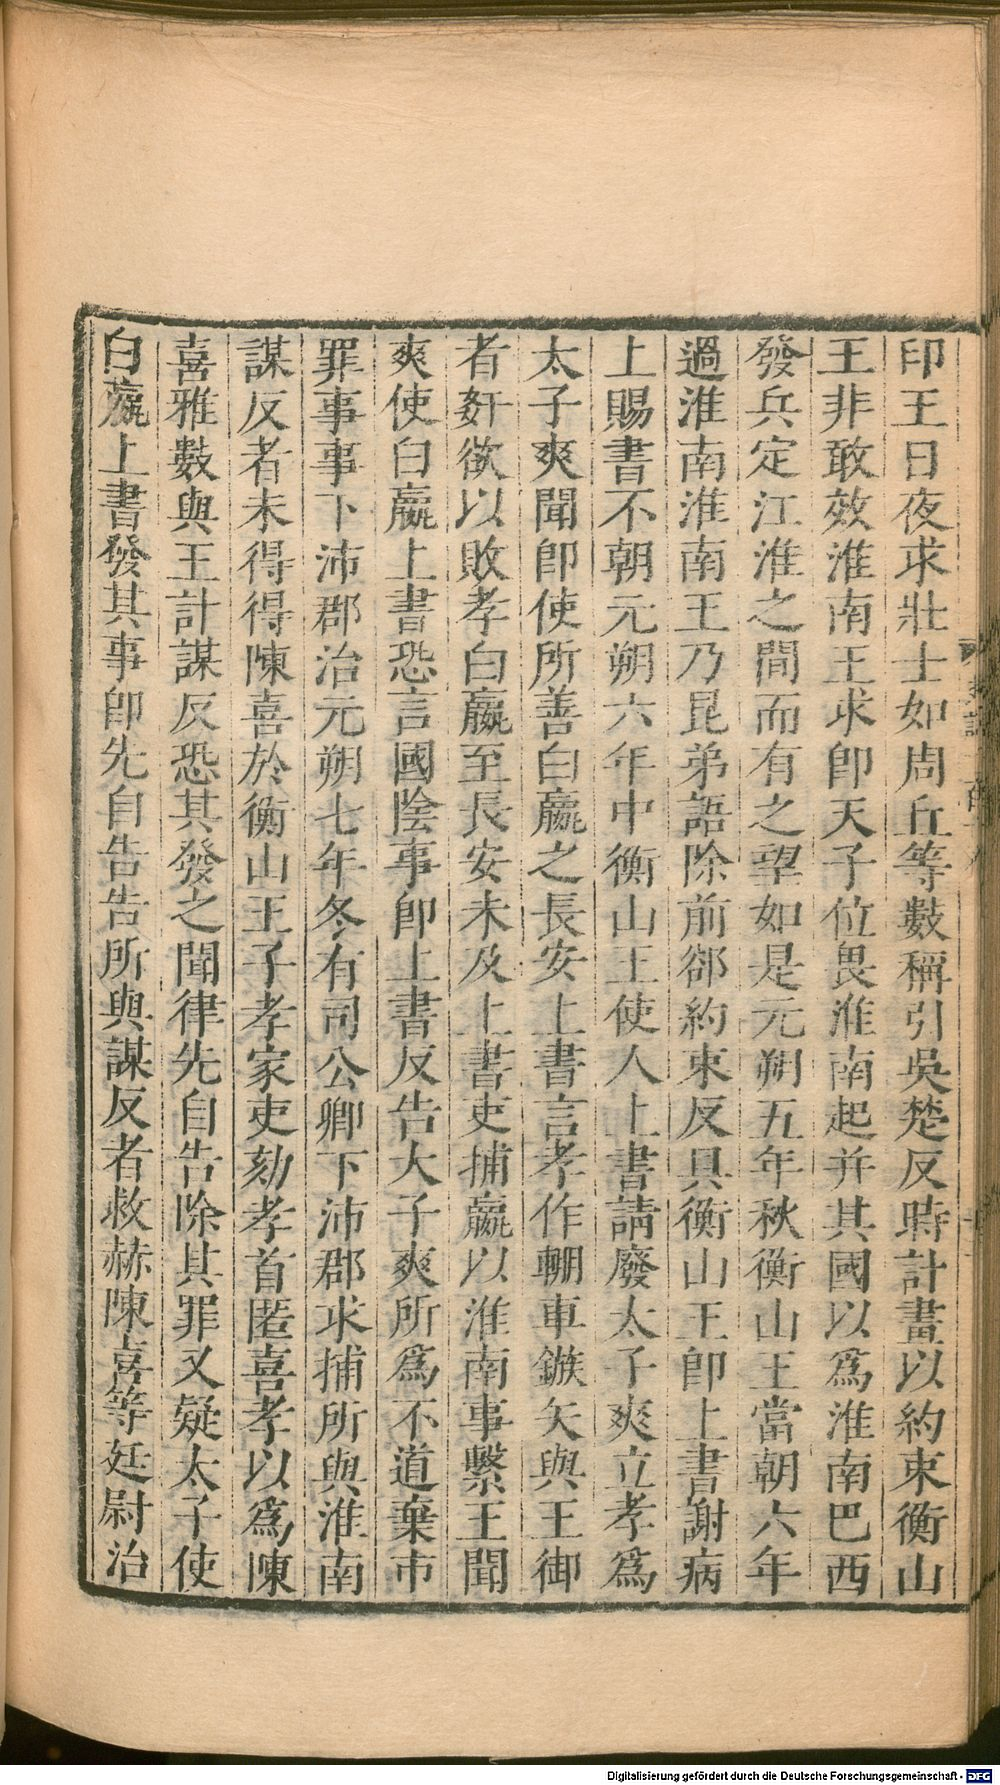 印王日夜求壯士如周丘等數稱引吳楚反時計畫以約束衡山
王非敢效淮南王求卽天子位畏淮南起并其國以爲淮南巴西
發兵定江淮之間而有之望如是元朔五年秋衡山王當朝六年
過淮南淮南王乃昆弟語除前郤約束反具衡山王卽上書謝病
上賜書不朝元朔六年中衡山王使人上書請廢太子爽立孝爲
太子爽聞卽使所善白嬴之長安上書言孝作輣車鏃矢與王御
者姧欲以敗孝白嬴至長安未及上書吏捕嬴以淮南事繫王聞
爽使白嬴上書恐言國陰事卽上書反告大子爽所爲不道棄市
罪事事下沛郡治元朔七年冬有司公卿下沛郡求捕所與淮南
謀反者未得得陳喜於衡山王子孝家吏劾孝首匿喜孝以爲陳
喜雅數與王計謀反恐其發之聞律先自告除其罪又疑太子使
白嬴上書發其事卽先自告告所與謀反者救赫陳喜等廷尉治
Digitalisierung gefördert durch die Deutsche Forschungsgemeinschaft - DFG